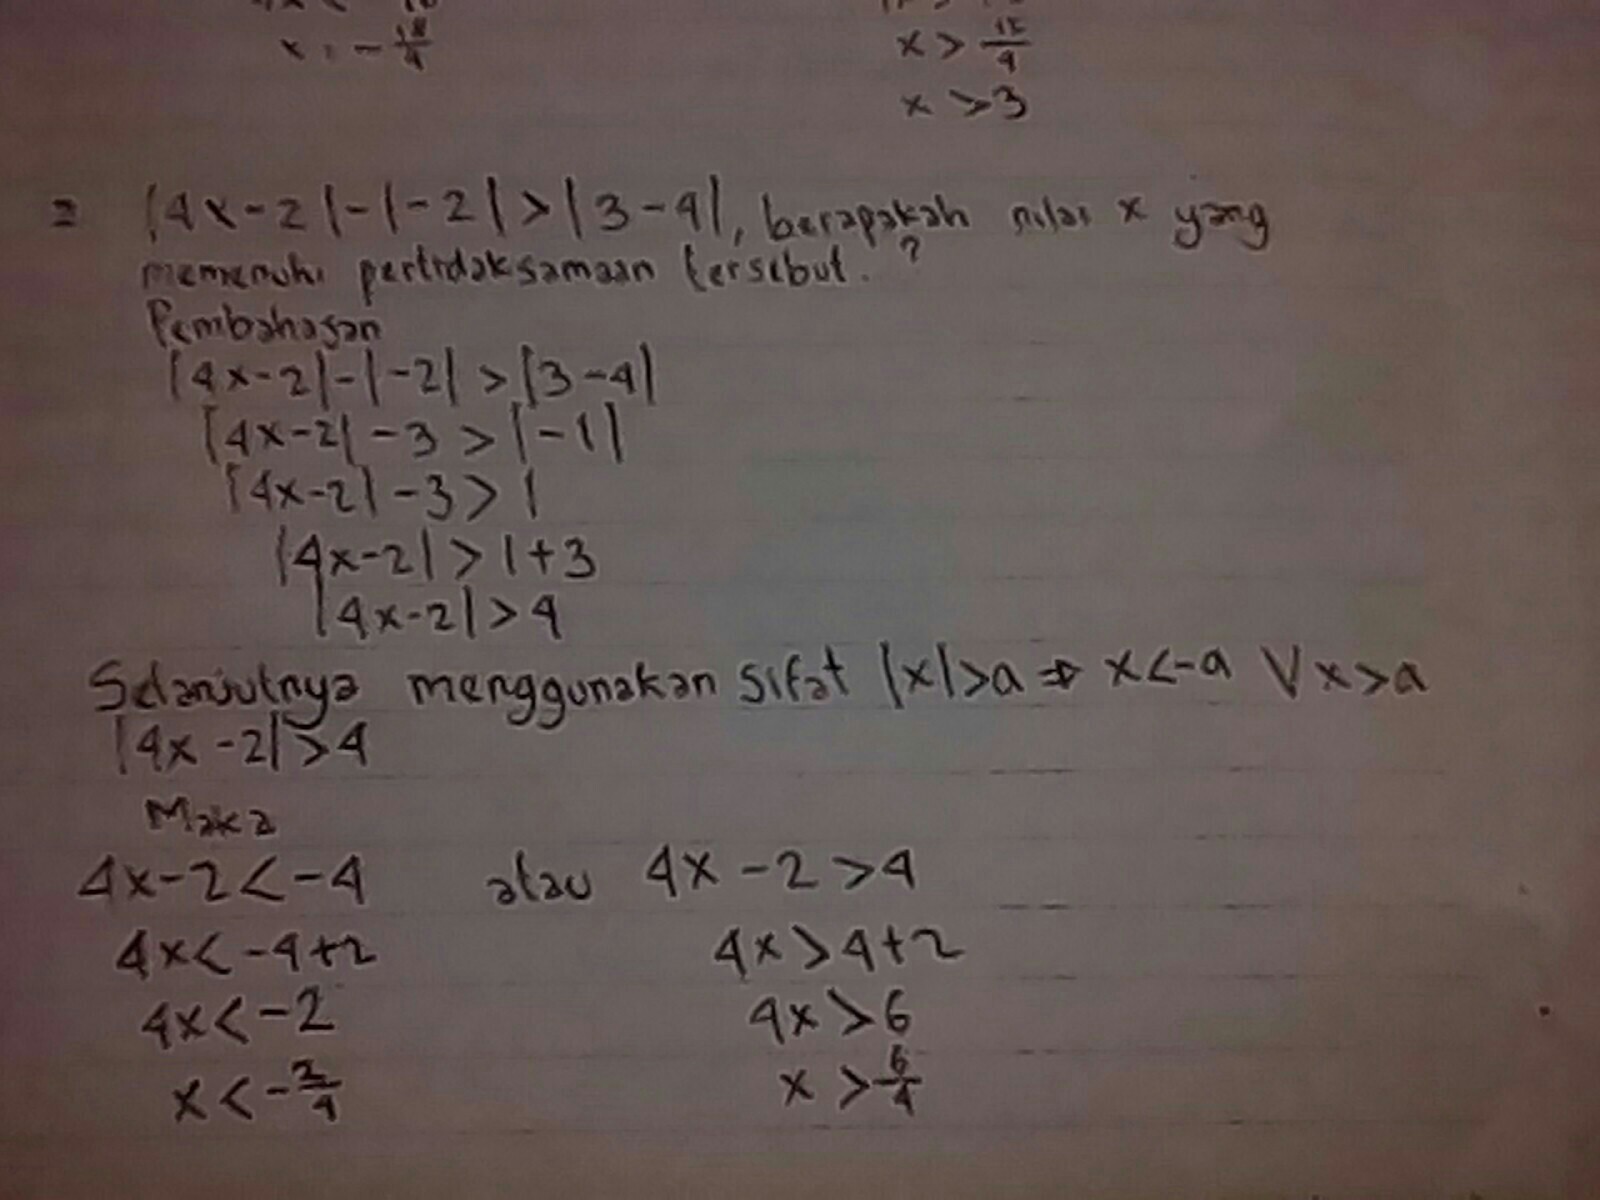 x > 12/4
x > 3
2 |4x-2|-|-2|>|3-4|, berapakah nilai x yang
memenuhi pertidaksamaan tersebut.?
Pembahasan
|4x-2|-|-2|>|3-4|
|4x-2|-3>|-1|
|4x-2|-3>1
|4x-2|>1+3
|4x-2|>4
Selanjutnya menggunakan sifat |x|>a ⇒ x<-a ∨ x>a
|4x-2|>4
Maka
4x-2<-4 atau 4x-2>4
4x<-4+2 4x>4+2
4x<-2 4x>6
x<-2/4 x>6/4